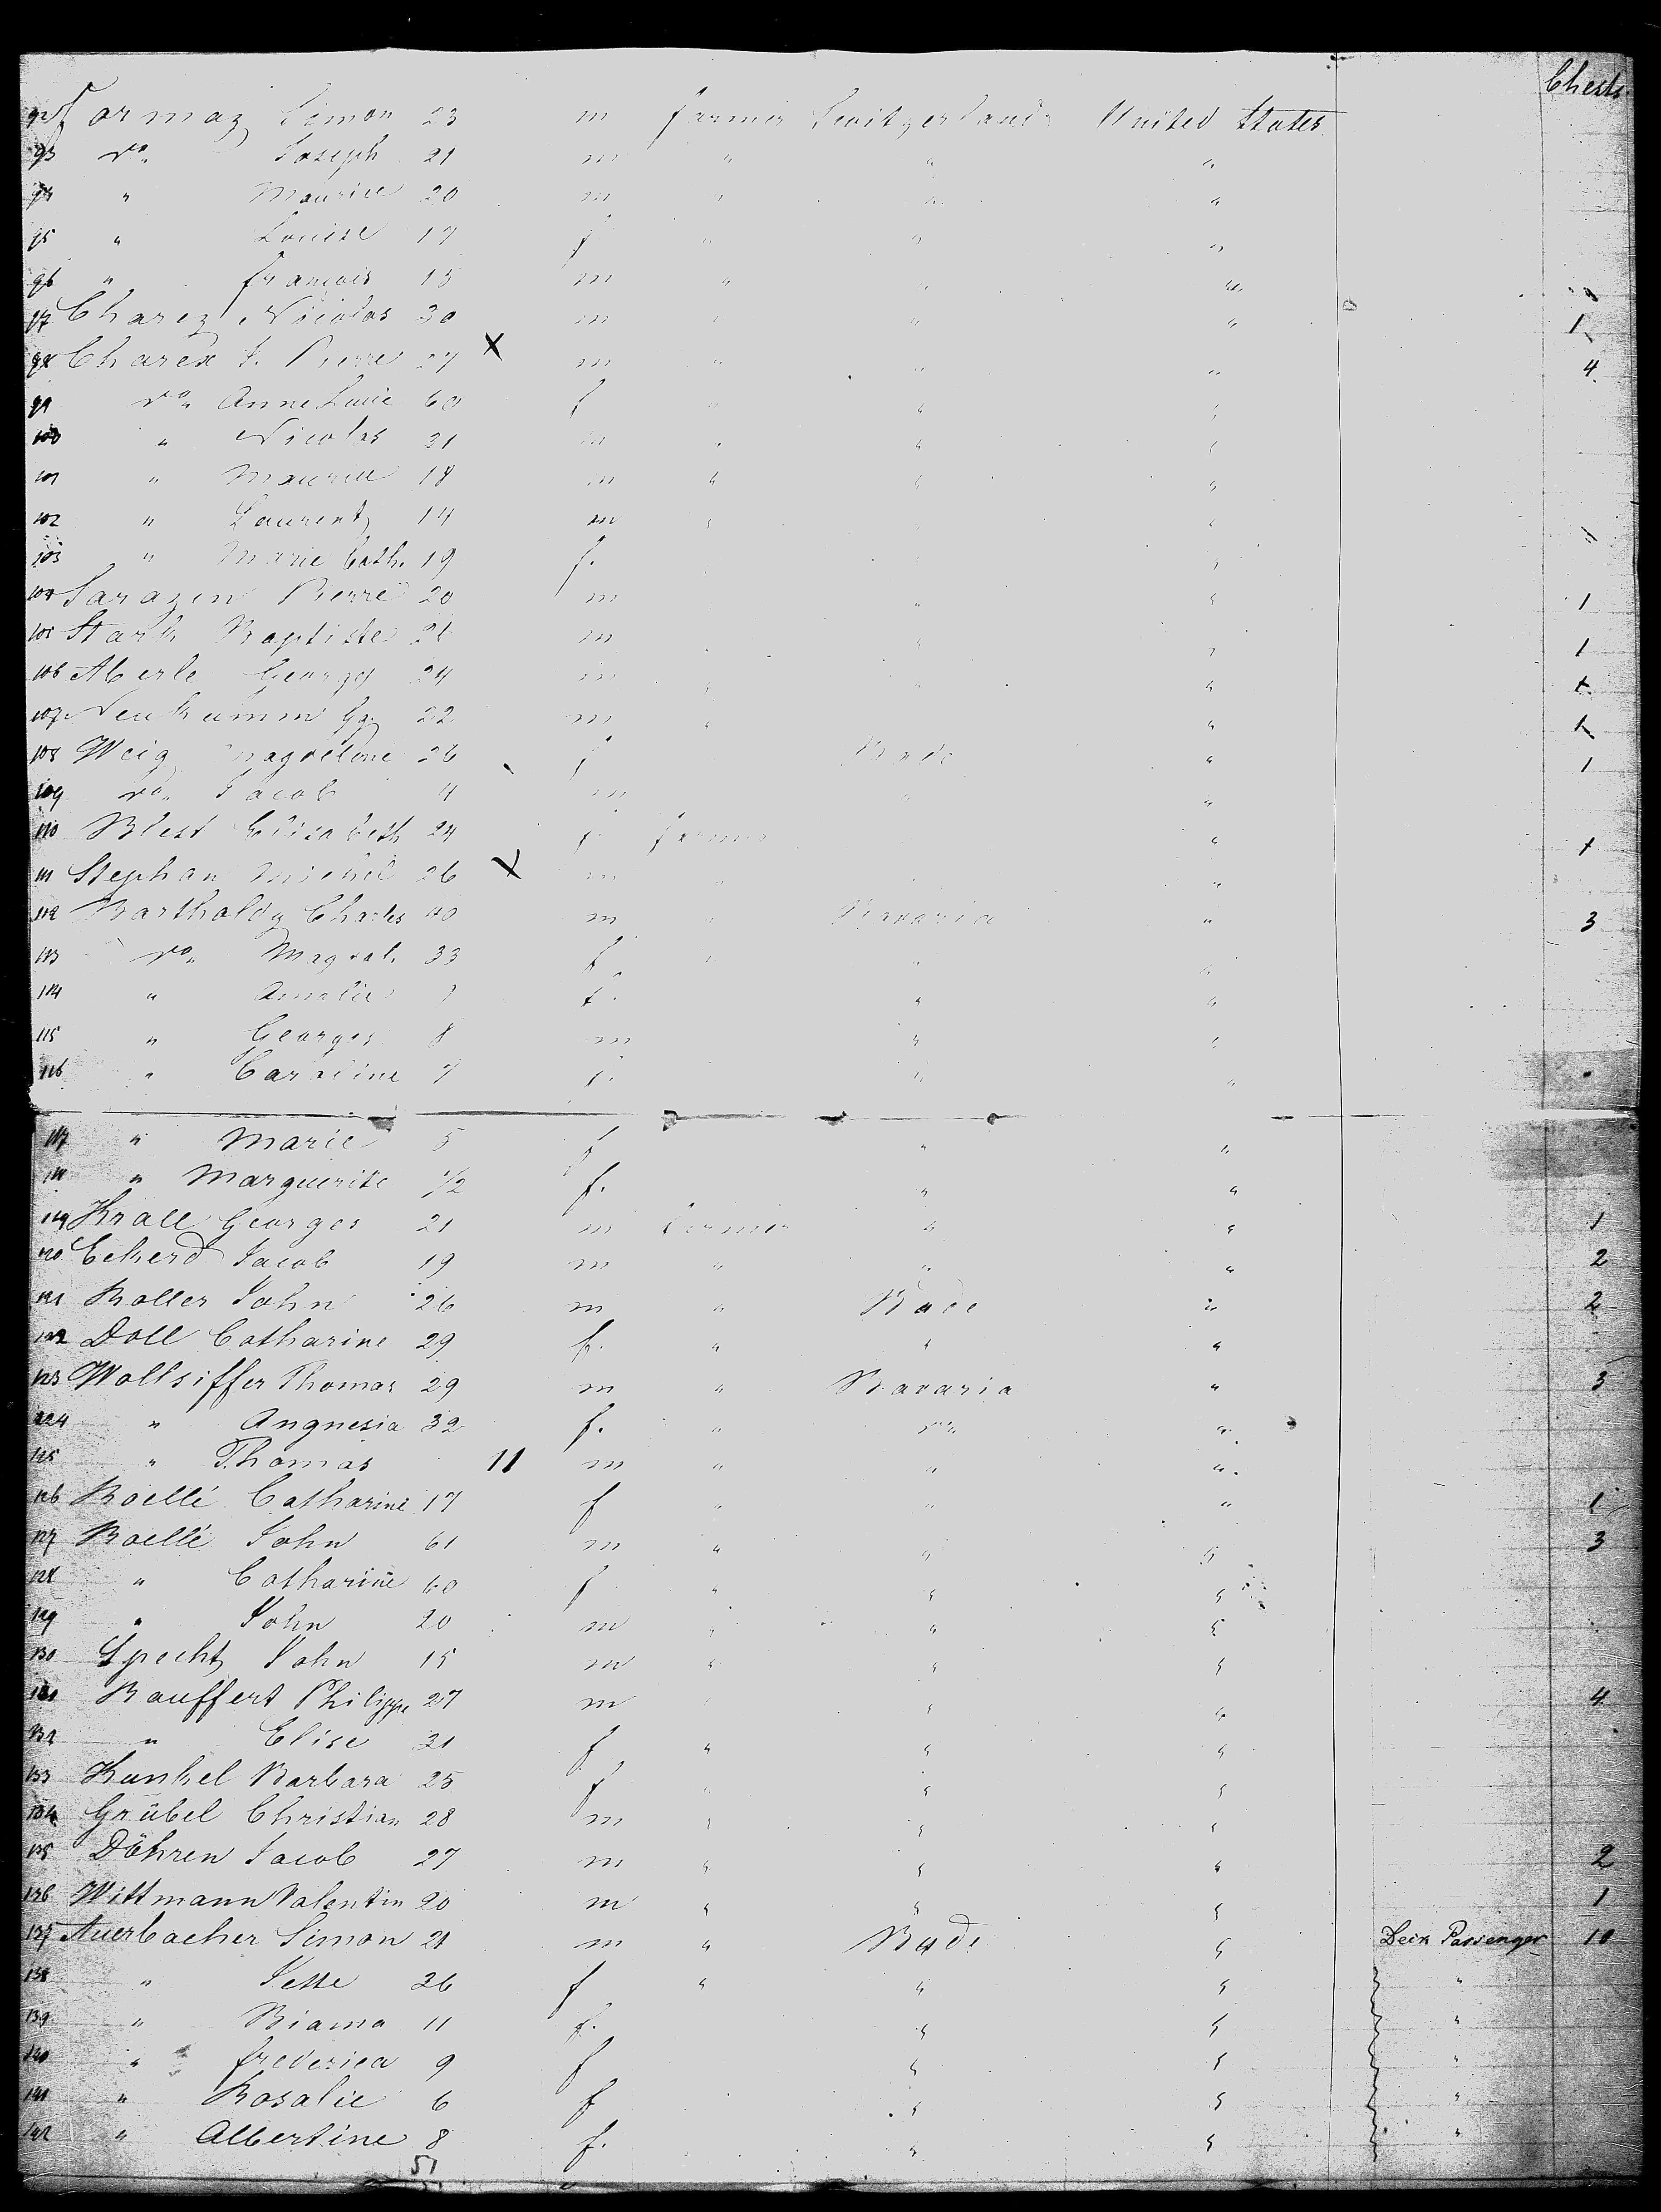 Chests
92 Formaz Simon 23 m farmer Switzerland United States
93 do. Joseph 21 m " " "
94 " Maurice 20 m " " "
95 " Louise 17 f " " "
96 " françois 13 m " " "
97 Charez Nicolas 30 m " " " 1
98 Charex J. Pierre 27 X m " " " 4
99 do. Anne Luie 60 f " " "
100 " Nicolas 21 m " " "
101 " Maurice 18 m " " "
102 " Laurent 14 m " " "
103 " Marie Cath. 19 f. " "
104 Sarazin Pierre 20 m " " 1
105 Stark Baptiste 26 m " " " 1
106 Aberle George 24 m " " " 1
107 Neukumm Gg. 22 m " " 1
108 Weig Magdelene 26 f Bade " 1
109 do. Jacob 4 m " "
110 Blest Elisabeth 24 f farmer " 1
111 Stephan Michel 26 X m " " "
112 Bartholdy Charles 40 m " Bavaria " 3
113 do. Magdal. 33 f " " "
114 " Amalie 9 f. " "
115 " Georges 8 m " "
116 " Caroline 7 f. " "
117 " Marie 5 f " "
118 " Marguerite 1/2 f. " "
119 Krall Georges 21 m farmer " " 1
120 Eckerd Jacob 19 m " " " 2
121 Boller John 26 m " Bade " 2
122 Doll Catharine 29 f. " " "
123 Wollsiffer Thomas 29 m " Bavaria " 3
124 " Angnesia 32 f. " do. "
125 " Thomas 11 m " " "
126 Boellé Catharine 17 f " " " 1
127 Boellé John 61 m " " " 3
128 " Catharine 60 f " " "
129 " John 20 m " " "
130 Specht John 15 m " " "
131 Bauffert Philippe 27 m " " 4
132 " Elise 31 f " " "
133 Kunkel Barbara 25 f " " "
134 Grübel Christian 28 m " " "
135 Döhren Jacob 27 m " " " 2
136 Wittmann Valentin 20 m " " " 1
137 Auerbacher Simon 21 m " Bade " Deck Passenger 10
138 " Jette 36 f " " " "
139 " Biama 11 f. " " "
140 " frederica 9 f " " "
141 " Rosalie 6 f " " "
142 " Albertine 8 f. " " "
51